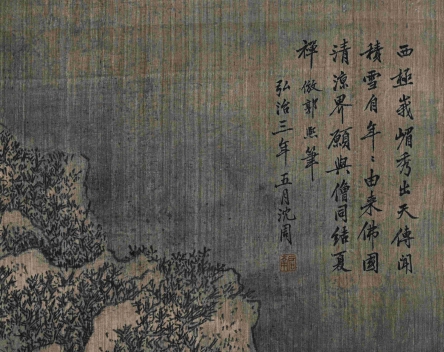 西極峩嵋秀出天傳聞
積雪自年〻由来佛國
清涼界願與僧同結夏
禅倣郭熙筆
弘治三年五月沈周